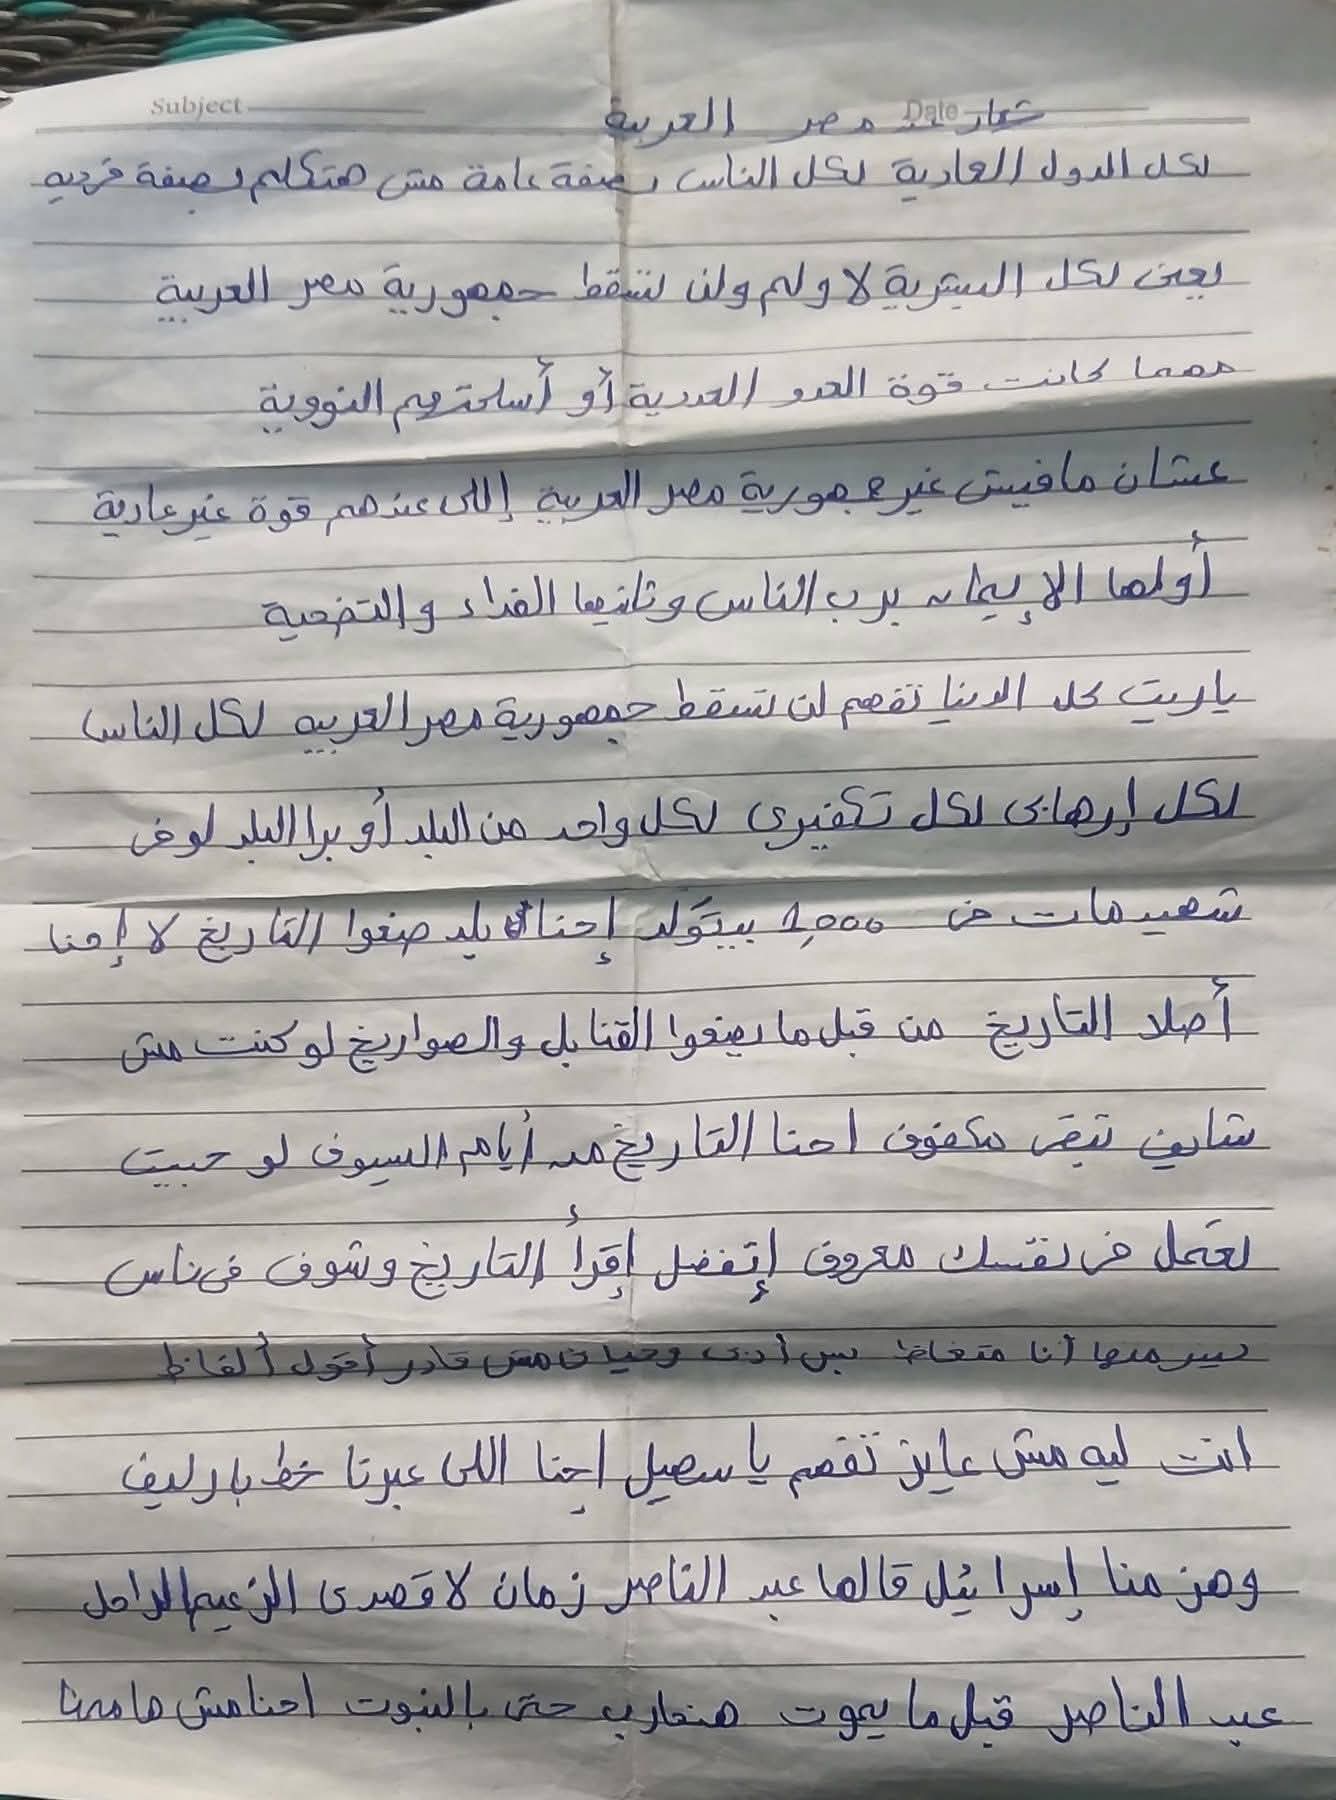 Subject Date
شعار مصر العربية
لكل الدول العادية لكل الناس بصفة عامة مش هتكلم بصفة فرديه
يعنى لكل البشرية لا ولم ولن تسقط جمهورية مصر العربية
مهما كانت قوة العدو العددية أو أسلحتهم النووية
عشان مافيش غير جمهورية مصر العربية إللى عندهم قوة غير عادية
أولها الإيمان برب الناس وثانيها الفداء والتضحية
ياريت كل الدنيا تفهم لن تسقط جمهورية مصر العربيه لكل الناس
لكل إرهابى لكل تكفيرى لكل واحد من البلد أو برا البلد لو فى
شهيد مات فى 1,000 بيتولد إحنا بلد صنعوا التاريخ لا إحنا
أصلا التاريخ من قبل ما يصنعوا القنابل والصواريخ لو كنت مش
شايف تبقى مكفوف احنا التاريخ من أيام السيوف لو حبيت
تعمل فى نفسك معروف إتفضل إقرأ التاريخ وشوف فى ناس
أنا متغاظ بس أدبى وحيائى مش قادر أقول ألفاظ
انت ليه مش عايز تفهم يا سهيل إحنا اللى عبرنا خط بارليف
وهزمنا إسرائيل قالها عبد الناصر زمان لا قصدى الزعيم الراحل
عبد الناصر قبل ما يموت هنحارب حتى بالنبوت احنا مش هامنا